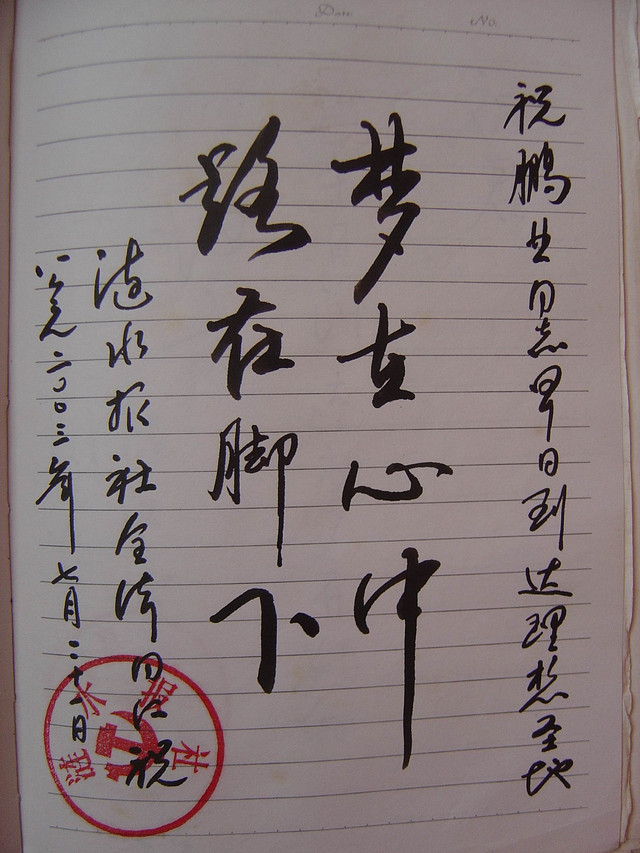 Date
No.
祝鹏同志早日到达理想圣地
梦在心中
路在脚下
涟水报社全体同仁祝
公元二〇〇三年七月二十一日
涟水报社